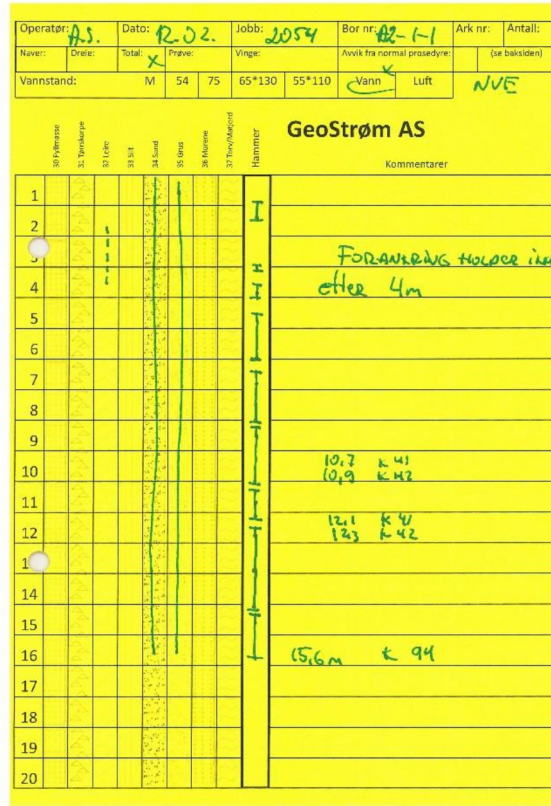 Operatør: A.S. Dato: 12.02. Jobb: 2054 Bor nr: A2-1-1 Ark nr: Antall:
Naver: Dreie: Total: X Prøve: Vinge: Avvik fra normal prosedyre: (se baksiden)
Vannstand: M 54 75 65*130 55*110 Vann Luft NVE
30 Fyllmasse 31 Tørrskorpe 32 Leire 33 Silt 34 Sand 35 Grus 36 Morene 37 Torv/Matjord Hammer
GeoStrøm AS
Kommentarer
1
2
FORANKRING HOLDER
4 etter 4m
5
6
7
8
9
10,7 K 41
10 10,9 K 42
11
12,1 K 41
12 12,3 K 42
1
14
15
16 15,6 m K 94
17
18
19
20